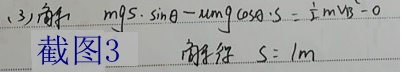 (3) 由 mgs·sinθ-μmgcosθ·s=½mVB²-0
截图3 解得 s=1m